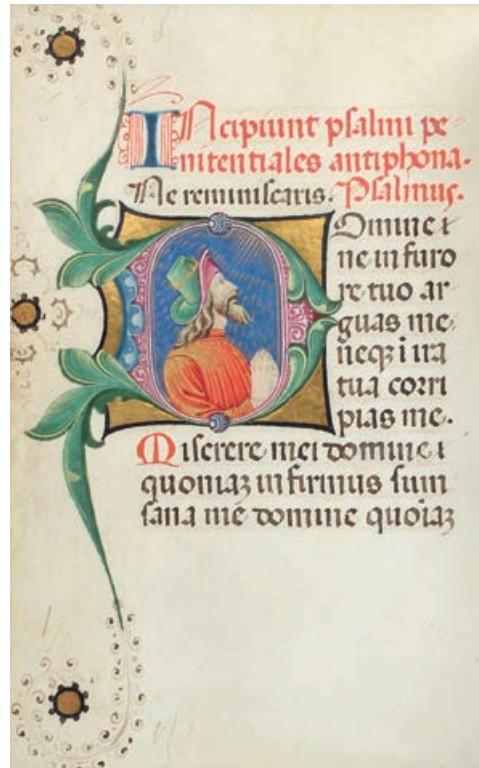 Incipiunt psalmi pe
nitentiales antiphona.
Ne reminiscaris. Psalmus.
Domine
ne in furo
re tuo ar
guas me
neqz i ira
tua corri
pias me.
Miserere mei domine
quoniaz infirmus sum
sana me domine quoiaz